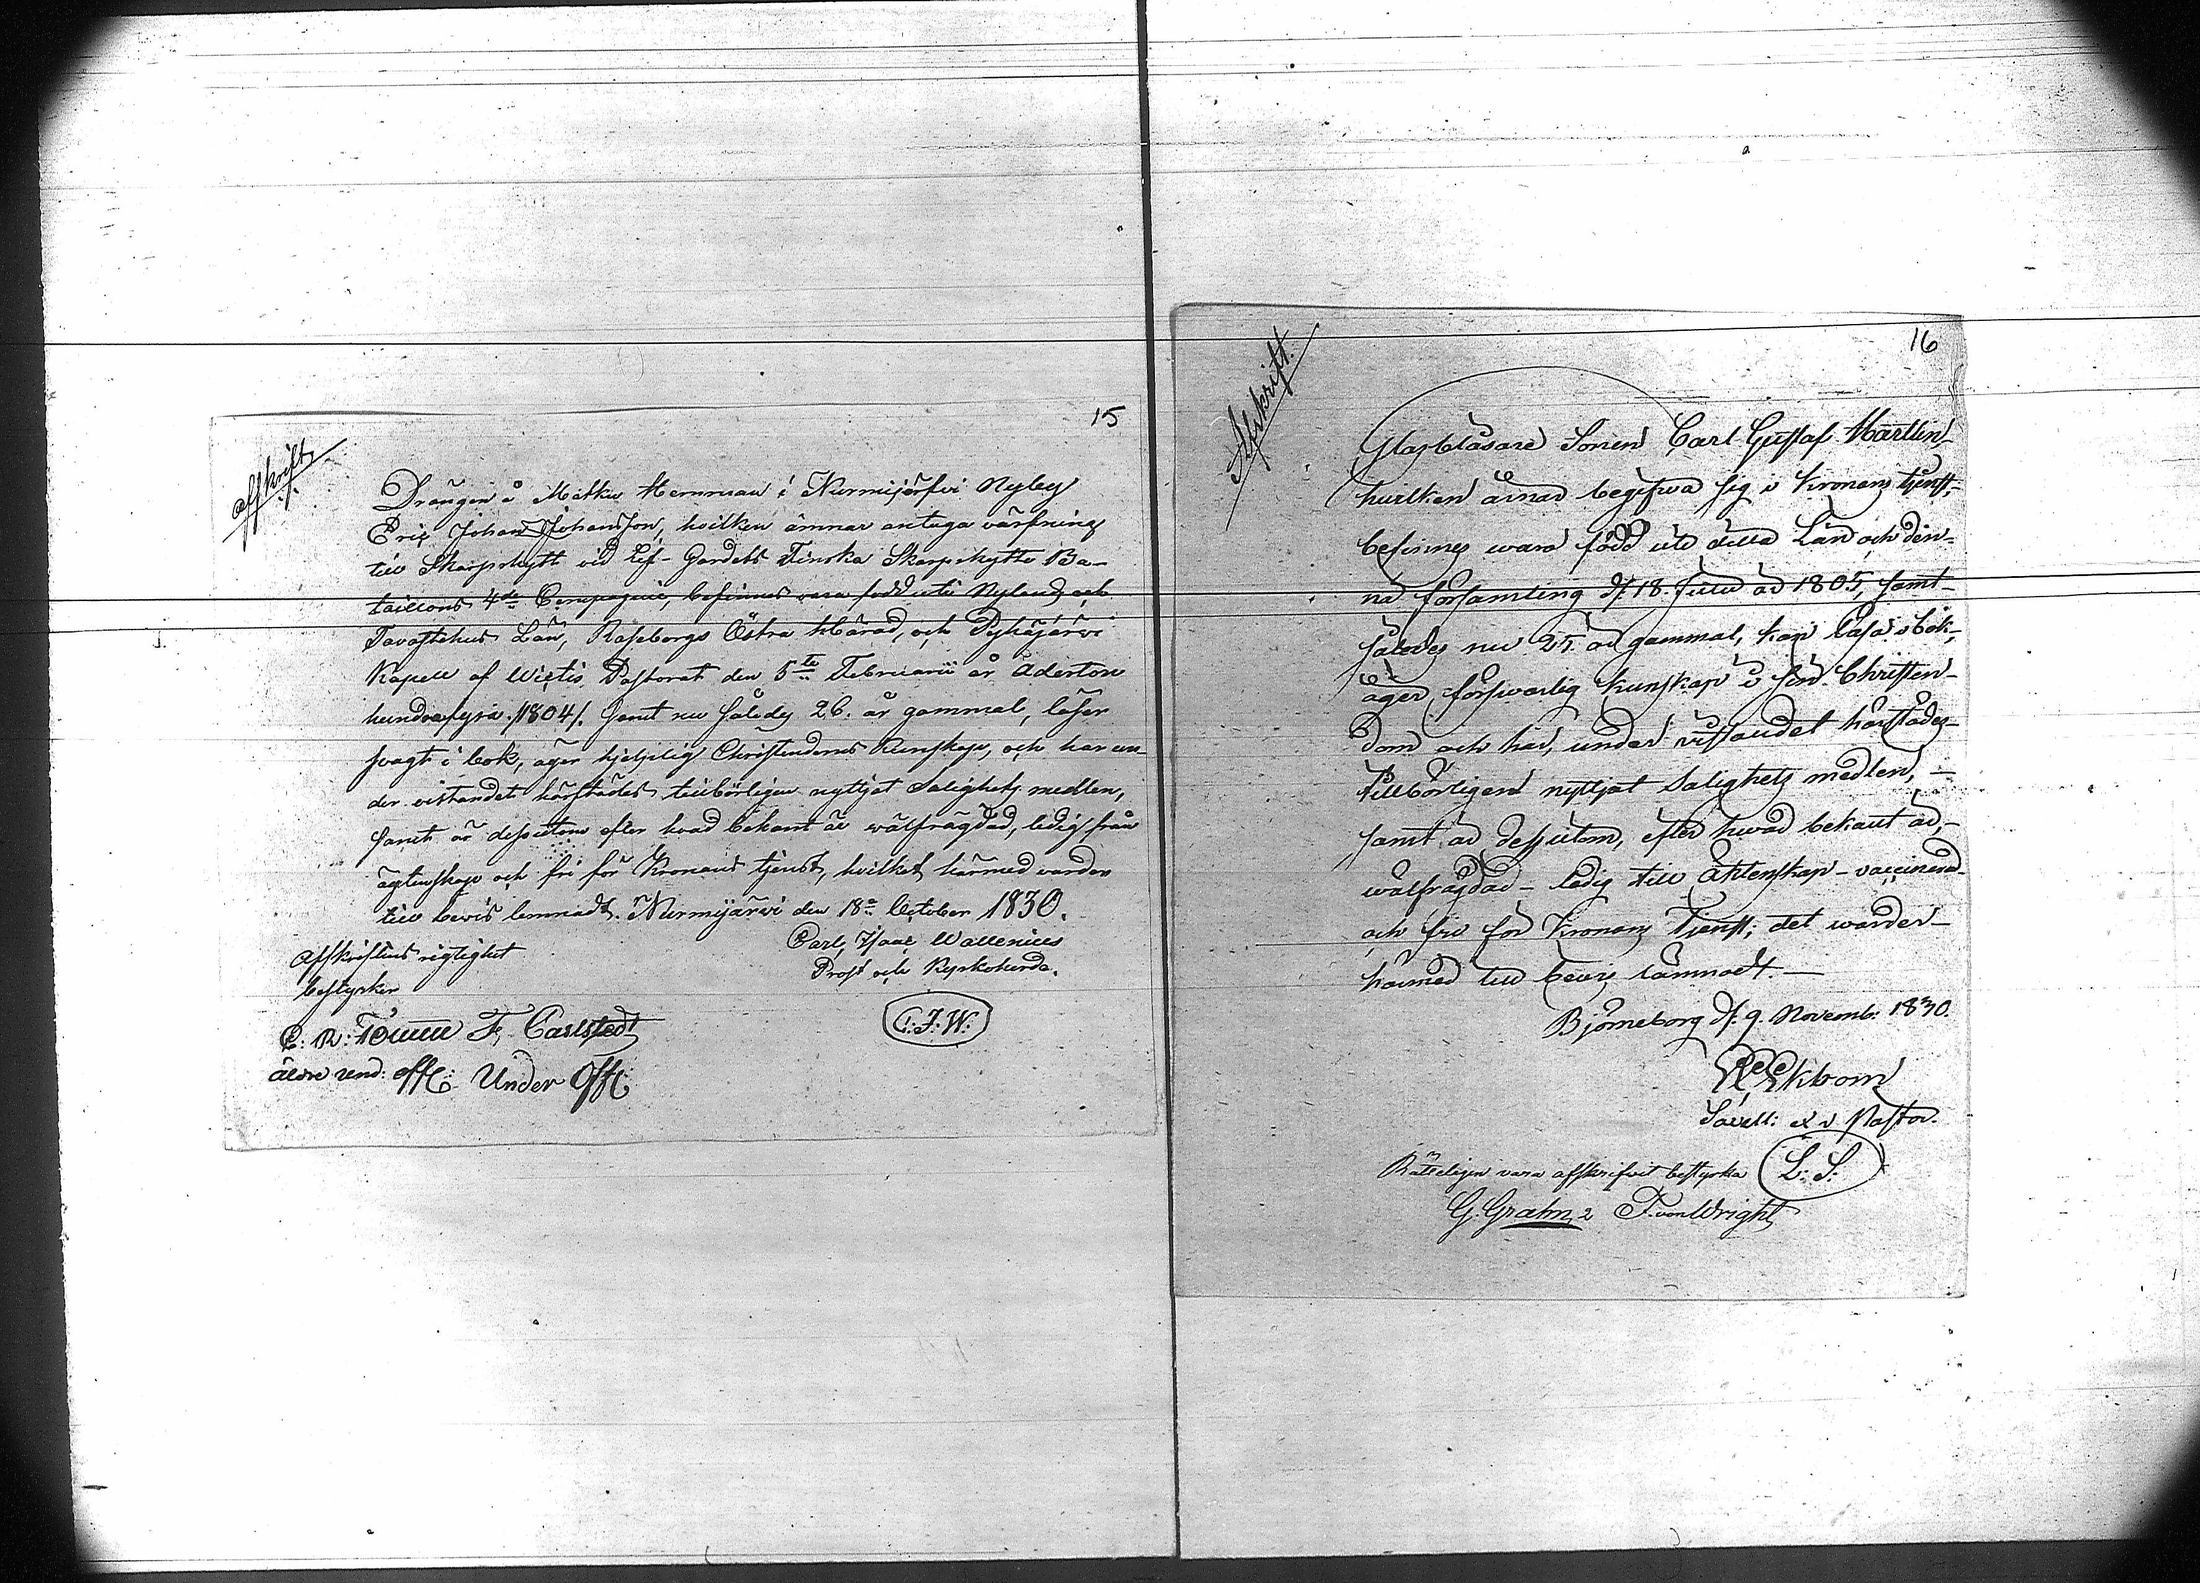 15
Afskrift.
Drängen å Matku Hemman i Nurmijärfvi Nyby
Eric Johan Johansson, hvilken ämnar antaga värfning
till Skarpskytt vid Lif-Gardets Finska Skarpskytte Ba-
taillons 4de Compagnie, befinnes vara född uti Nylands och
Tavastehus Län, Raseborgs Östra Härad, och Pyhäjärvi
Kapell af Wictis Pastorat den 5te Februarii år Aderton
hundrafyra /1804/. Samt nu således 26. år gammal, läser
svagt i bok, äger hjelplig Christendoms Kunskap, och har un-
der vistandet härstädes tillbörligen nyttjat Salighets medlen,
samt är dessutom efter hvad bekant är wälfrägdad, ledig från
ägtenskap och fri för Kronans tjenst, hvilket härmed varder
till bevis lemnadt. Nurmijärvi den 18de October 1830.
Carl Isaac Wallenius
Prost och Kyrkoherde.
Afskriftens rigtighet
bestyrker
C:J:W:
F. Carlstedt
äldre und: offc: Under Offc:
16
Afskrift.
Glasblåsare Sonen Carl Gustaf Martlin,
hvilken ärnar begifva sig i Kronans tjenst,
befinnes wara född uti detta Län och den-
na församling d. 18. Julii år 1805, samt
således nu 25 år gammal, kan läsa i bok,
äger försvarlig kunskap i sin Christen-
dom och har, under vistandet härstädes
tillbörligen nyttjat Salighets medlen, —
samt är dessutom, efter hvad bekant är,
wälfrägdad — ledig till Äktenskap — vaccinerad
och fri för Kronans Tjenst; det warder
härmed till bevis lämnadt. —
Björneborg d. 9. Novemb: 1830.
Ekbom
Pastor.
Rätteligen vara afskrifvit bestyrka
L: S:
G. Grahn 2 F. von Wright